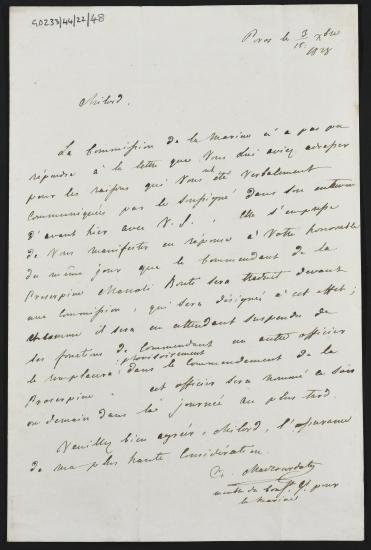 GD233/44/22/48
Poros le 3/15 xbre
1828
Milord.
La Commission de la Marine n'a pas pu
répondre à la lettre que Vous lui aviez adressée
pour les raisons qui Vous ont été verbalement
communiquées par le soussigné dans son entrevue
d'avant hier avec V. S. , Elle s'empresse
de Vous manifester en réponse à Votre honorable
du même jour que le Commandant de la
Proserpine Manoli Bouti sera traduit devant
une Commission, qui sera désignée à cet effet;
et comme il sera en attendant suspendu de
ses fonctions de Commandant un autre officier
le remplacera provisoirement dans le commandement de la
Proserpine cet officier sera nommé ce soir
ou demain dans la journée au plus tard.
Veuillez bien agréer, Milord, l'assurance
de ma plus haute Considération.
Mavrocordato
pour
la Marine